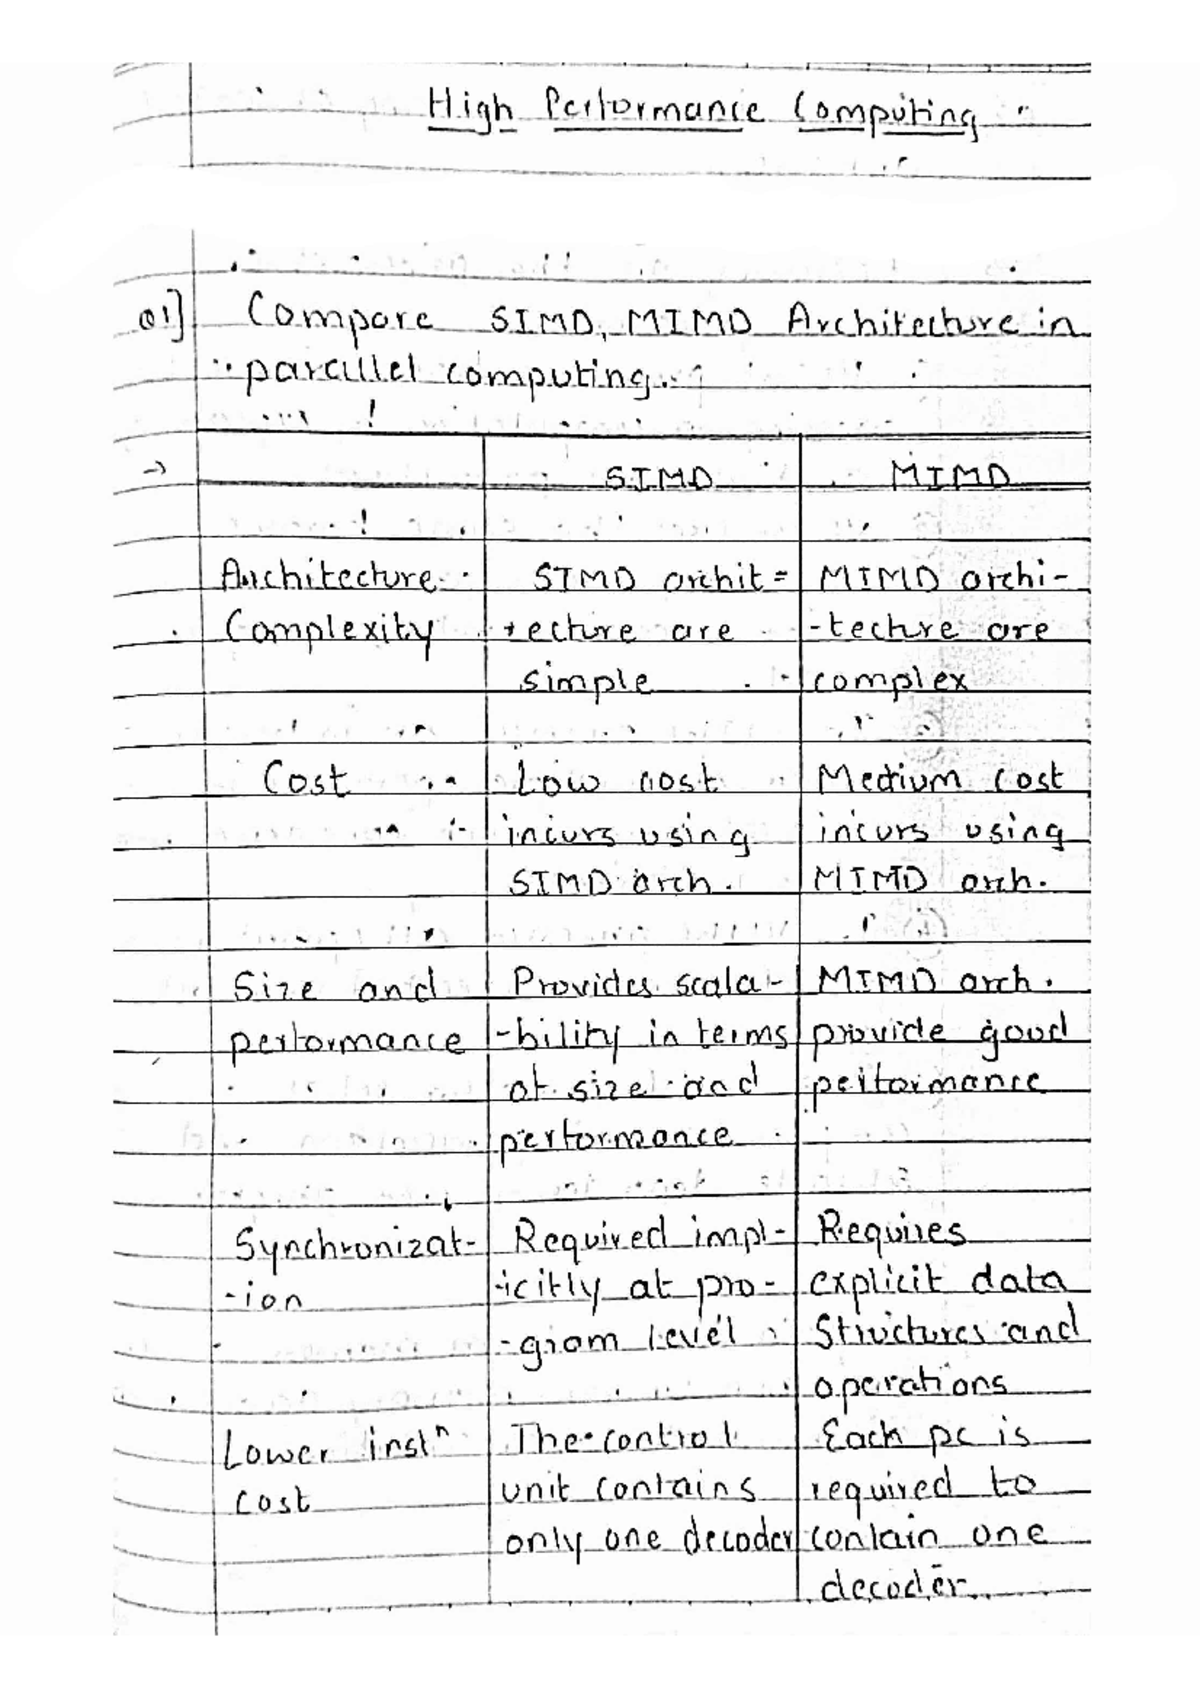 High Performance Computing
Q1] Compare SIMD, MIMD Architecture in
parallel computing.
→ SIMD MIMD
Architecture SIMD archit= MIMD archi-
Complexity tecture are -tecture are
simple complex
Cost Low cost Medium cost
incurs using incurs using
SIMD arch. MIMD arch.
Size and Provides scala- MIMD arch.
performance -bility in terms provide good
of size and performance
performance
Synchronizat- Required impl- Requires
-ion -icitly at pro- explicit data
-gram level Structures and
operations
Lower instⁿ The control Each pc is
cost unit contains required to
only one decoder contain one
decoder.